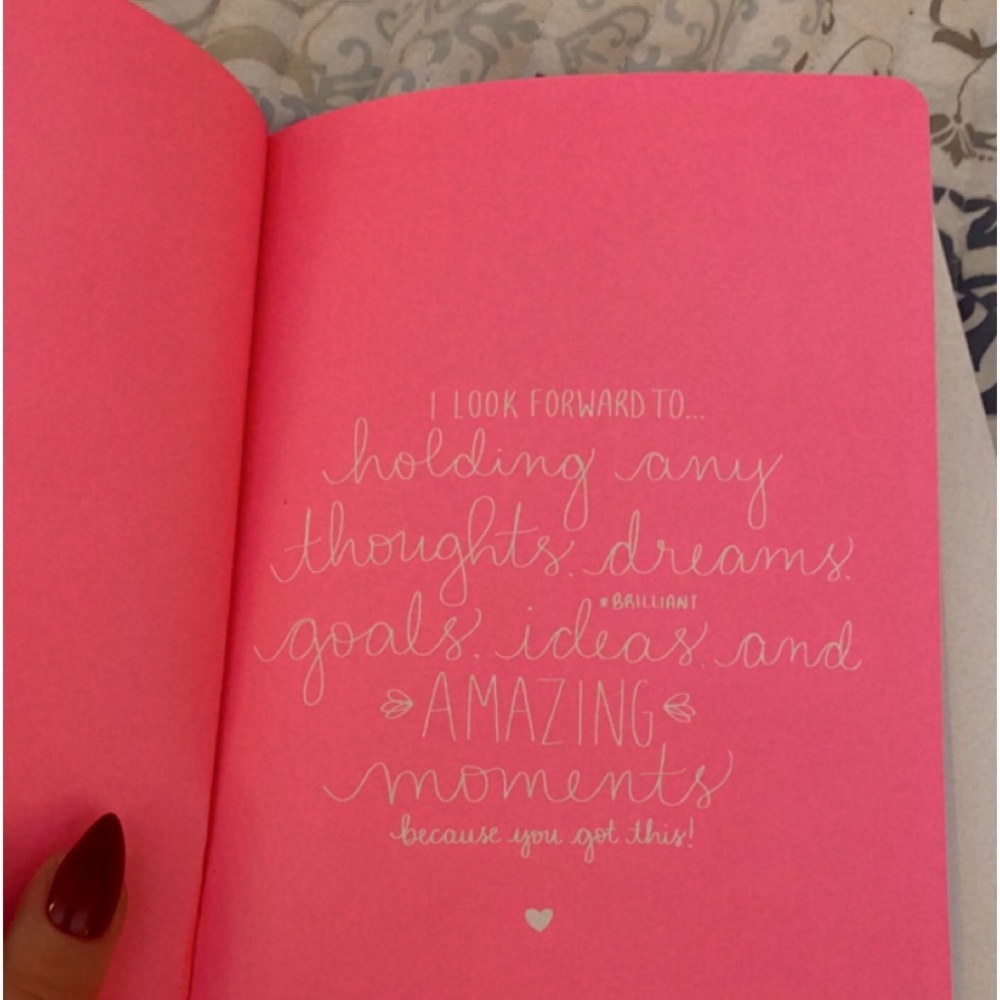 I LOOK FORWARD TO...
holding any
thoughts, dreams,
#BRILLIANT
goals, ideas, and
AMAZING
moments
because you got this!